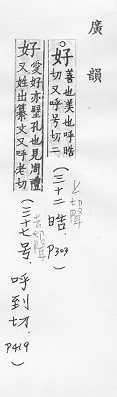 廣韻
○好善也美也呼晧
切又呼号切二
(三十二晧. P303)
上聲
好愛好亦璧孔也見周禮
又姓出纂文又呼老切
(三十七号. 呼到切. P419)
去聲